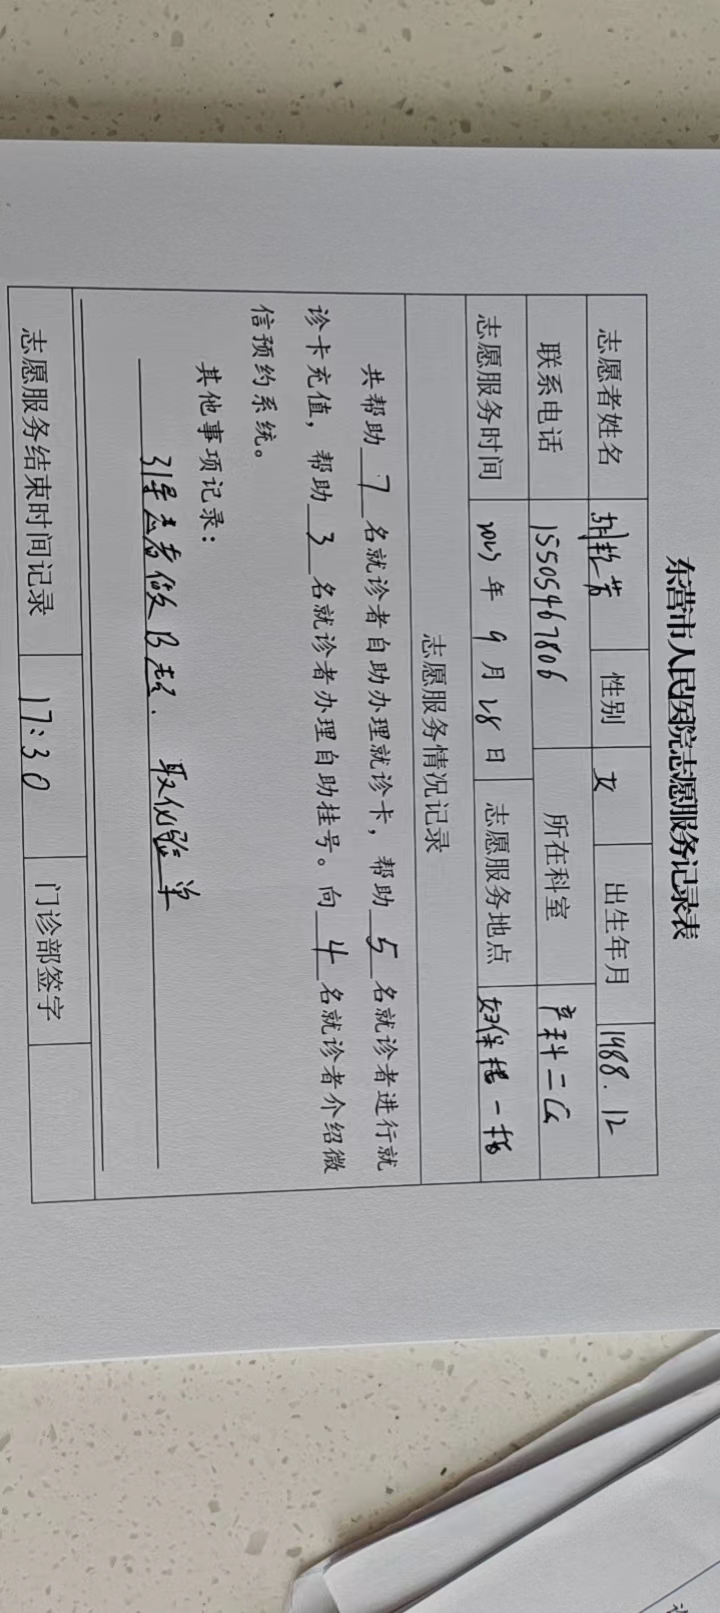 东营市人民医院志愿服务记录表
志愿者姓名 性别 女 出生年月 1988.12
联系电话 15505467806 所在科室 产科二区
志愿服务时间 2023年9月28日 志愿服务地点 妇保楼一楼
志愿服务情况记录
共帮助 7 名就诊者自助办理就诊卡，帮助 5 名就诊者进行就
诊卡充值，帮助 3 名就诊者办理自助挂号。向 4 名就诊者介绍微
信预约系统。
其他事项记录：
引导患者做B超、取化验单
志愿服务结束时间记录 17:30 门诊部签字